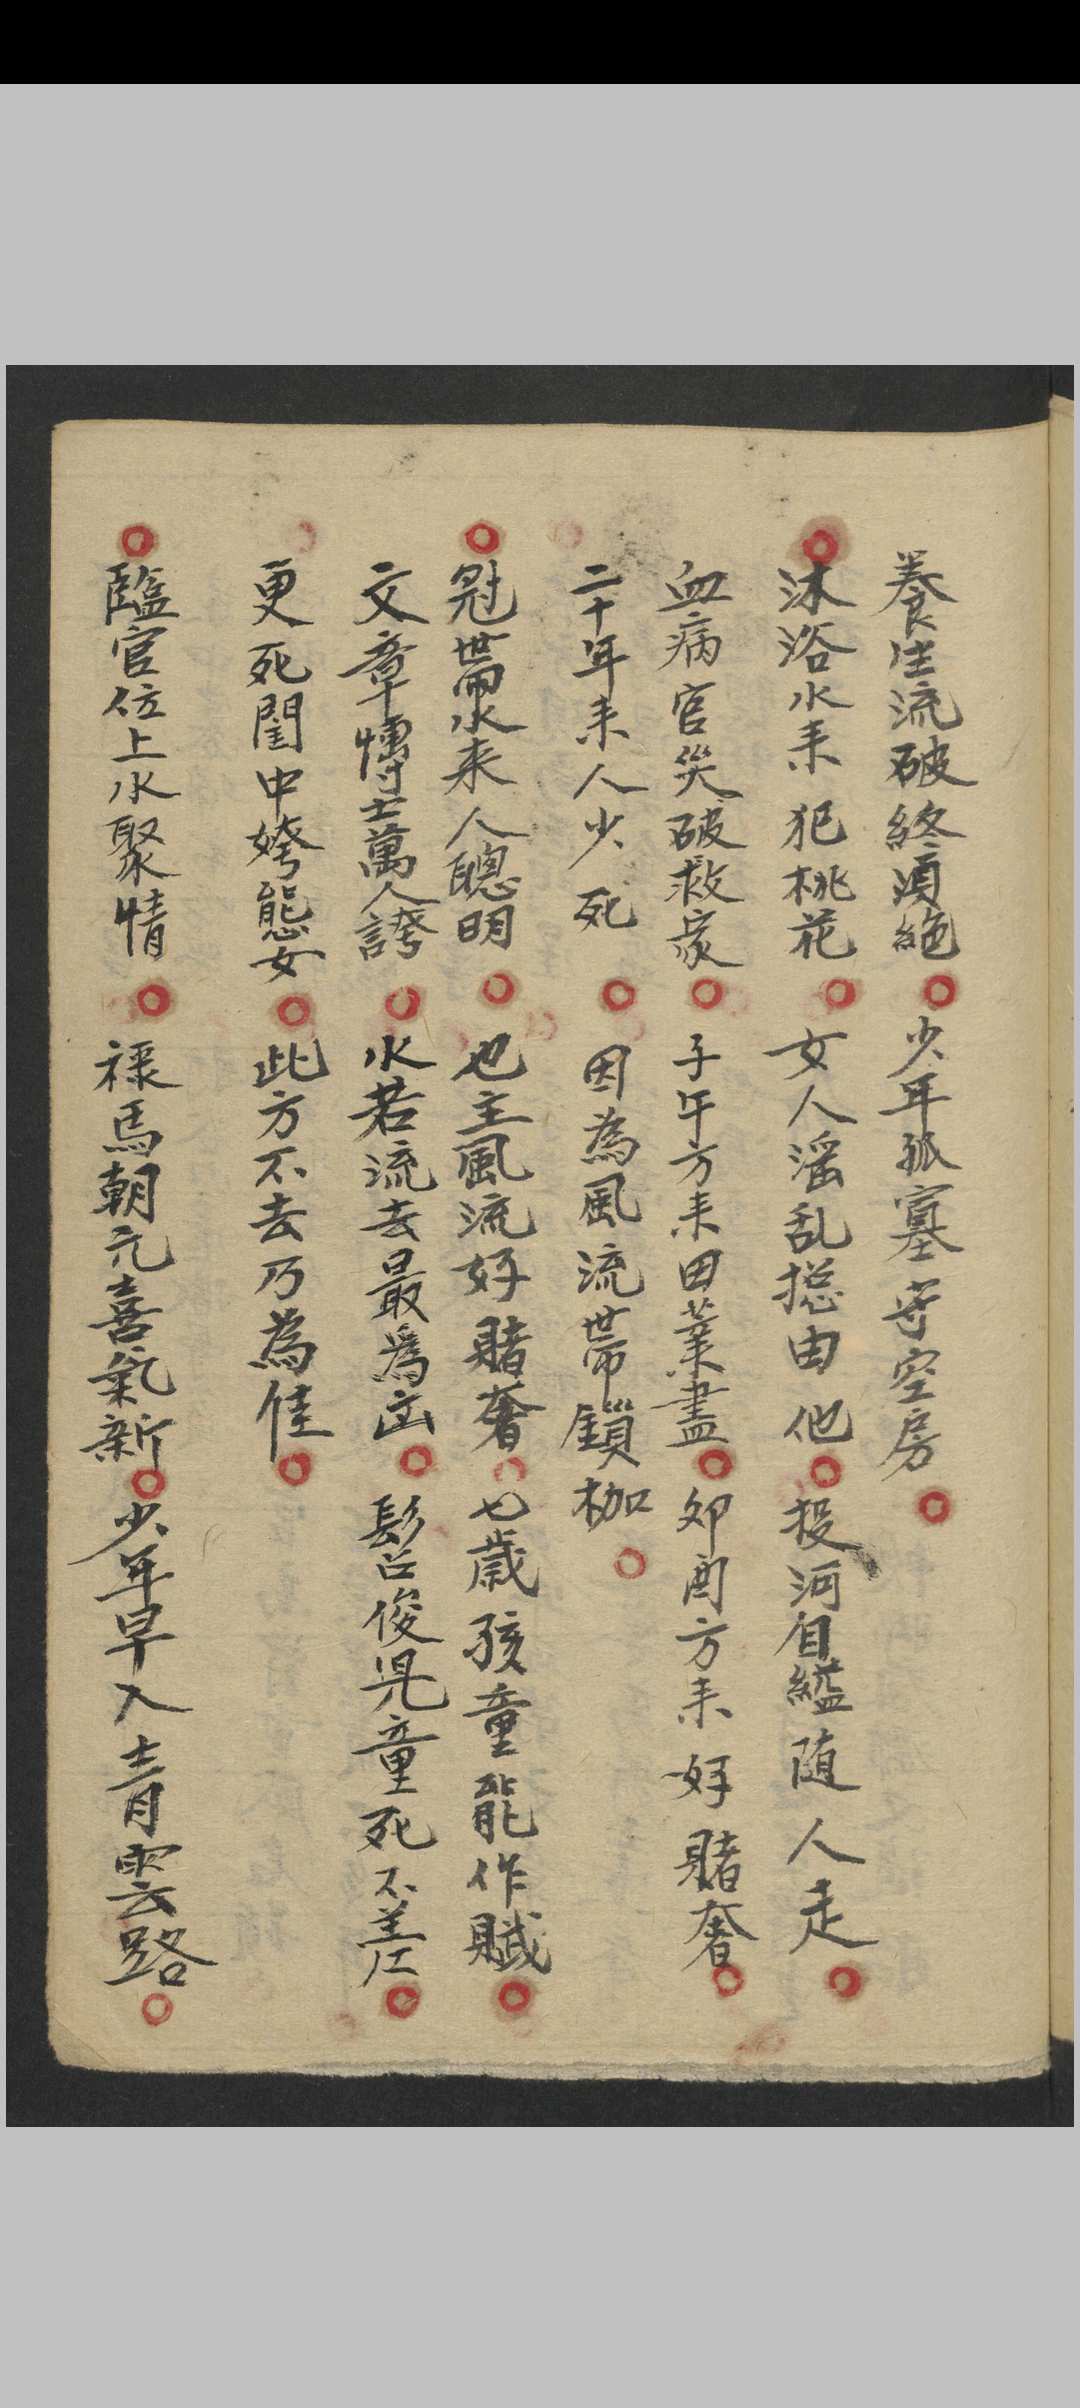 養生流破終須絕 少年孤寡守空房
沐浴水來犯桃花 女人滛乱摠由他 投河自縊随人走
血病官災破敗家 子午方来田業盡 卯酉方来好賭奢
二十年来人少死 因為風流带鎖枷
冠帶水来人聰明 也主風流好賭奢 七歲孩童能作賦
文章博士萬人誇 水若流去最為凶 髫俊児童死不差
更死閨中嬌態女 此方不去乃為佳
臨官位上水聚情 禄馬朝元喜氣新 少年早入青雲路